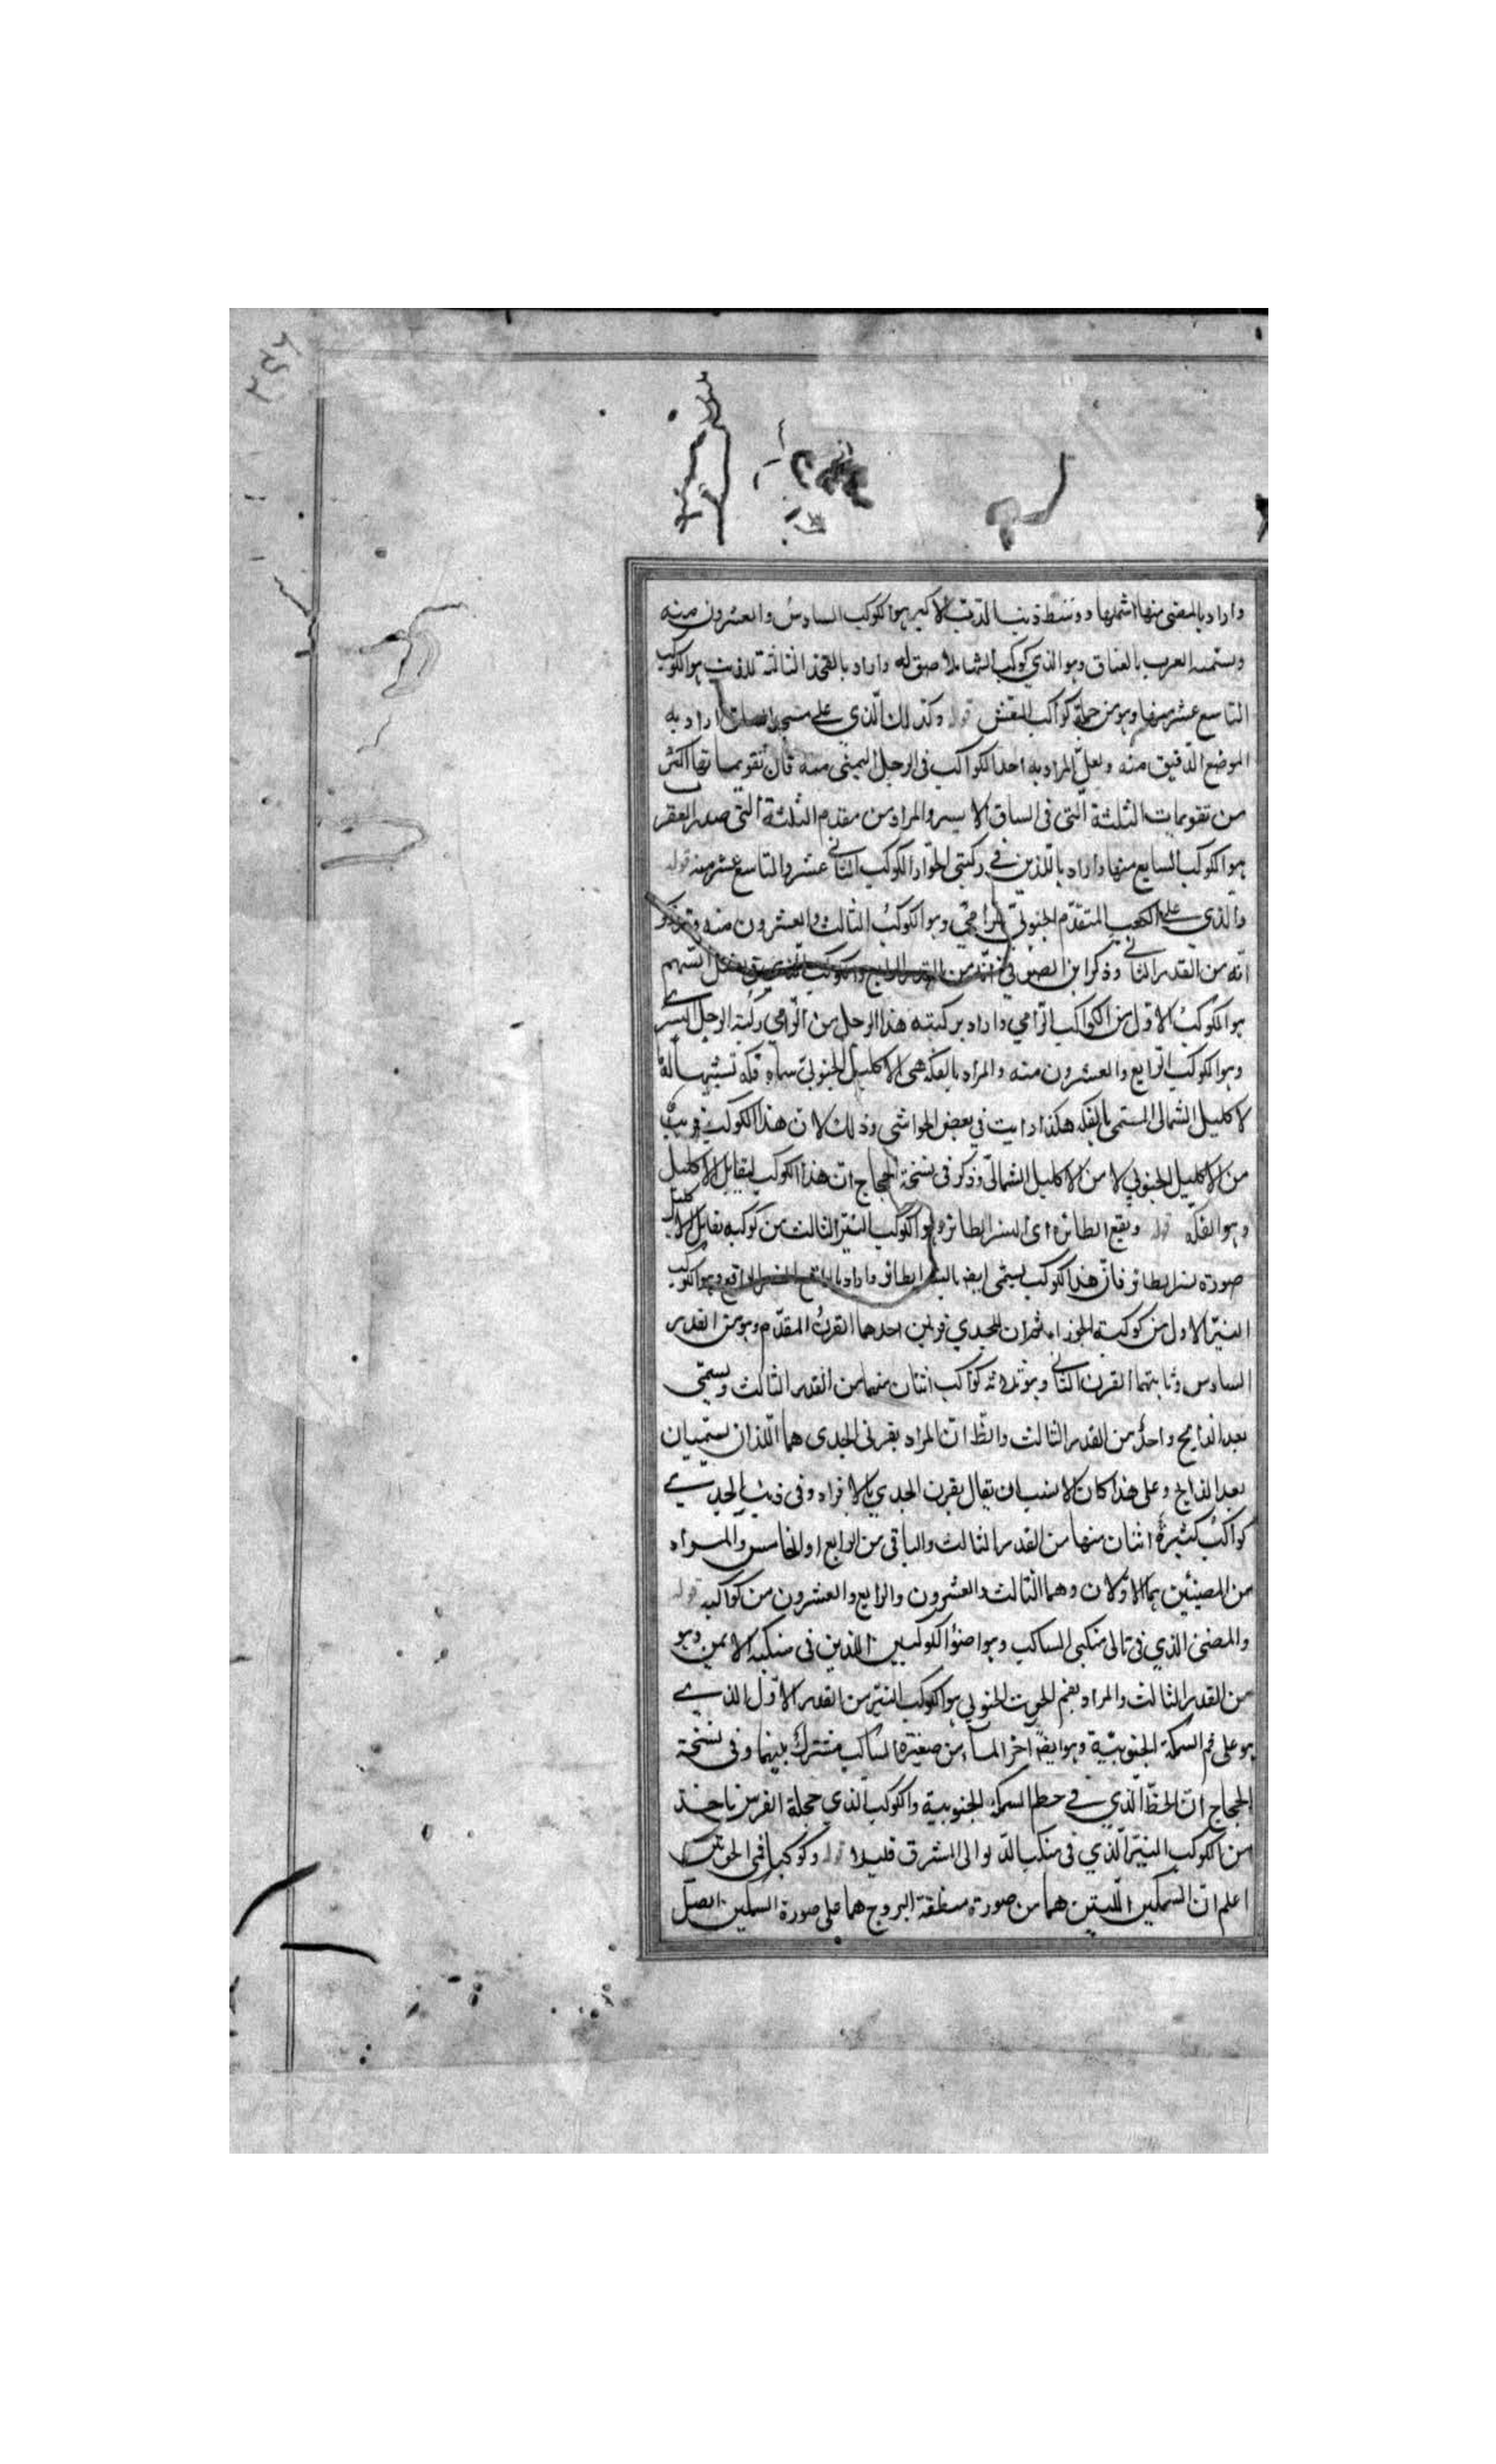 واراد بالمضئ منها اشملها ووسط ذنب الدب الاكبر هو الكوكب السادس والعشرون منه
ويسميه العرب بالعناق وهو الذي كوكب السها ملاصق له واراد بالفخذ الثالثة للذنب هو الكوكب
التاسع عشر منها وهو من جملة كواكب النعش قوله وكذلك الذي على اراد به
الموضع الدقيق منه ولعل المراد به احد الكواكب فى الرجل اليمنى منه فان تقويماتها اكثر
من تقويمات الثلثة التى فى الساق الايسر والمراد من مقدم الثلثة التى صدر العقر
هو الكوكب السابع منها واراد باللذين في ركبتى الحوا الكوكب الثانى عشر والتاسع عشر منه قوله
والذي على الكعب المتقدم الجنوبي للرامي وهو الكوكب الثالث والعشرون منه وقد ذكر
انه من القدر الثانى وذكر ابن الصوفي انه من القدر الرابع والكوكب الذي على السهم
هو الكوكب الاول من الكواكب الرامي واراد بركبته هذا الرجل من الرامي ركبة الرجل اليسرے
وهو الكوكب الرابع والعشرون منه والمراد بالفكه هى الاكليل الجنوبي سماه فكه تشبيها له
لاكليل الشمالى المسمى بالفكه هكذا رايت في بعض الحواشى وذلك لان هذا الكوكب قريب
من الاكليل الجنوبي لا من الاكليل الشمالى وذكر فى نسخة الحجاج ان هذا الكوكب يقابل الاكليل
وهو الفكه قوله ويقع الطائره اى النسر الطائره هو الكوكب النير الثالث من كوكبه يقابل الاكليل
صورة نسر الطائر فان هذا الكوكب يسمى ايضا بالنسر الطائر واراد بالواقع النسر الواقع وهو الكوكب
النير الاول من كوكبة ثم ان للجدي قرنين احدهما القرن المقدم وهو من القدر
السادس وثانيهما القرن الثانى وهو ثلاثه كواكب اثنان منهما من القدر الثالث ويسمى
بعد الذابح واحد من القدر الثالث والظ ان المراد بقرنى الجدى هما اللذان يسميان
بعد الذابح وعلى هذا كان الانسب ان يقال بقرن الجدي بالافراد وفى ذنب الجديے
كواكب كثيرة اثنان منها من القدر الثالث والباقى من الرابع او الخامس والمراد
من المضيئين هما الاولان وهما الثالث والعشرون والرابع والعشرون من كواكبه قوله
والمضئ الذي فى تالى منكبى الساكب وهو اضوء الكوكبين اللذين فى منكبه الايمن وهو
من القدر الثالث والمراد بفم الحوت الجنوبي هو الكوكب النير من القدر الاول الذيے
هو على فم السمكة الجنوبية وهو ايضا آخر الماء من الساكب مشترك بينهما وفى نسخة
الحجاج ان الخط الذي في حطم السمكة الجنوبية والكوكب الذي جحفلة الفرس ياخذ
من الكوكب النير الذي فى منكب الدلو الى المشرق قليلا قوله وكوكبا فمى الحوتين
اعلم ان السمكين اللتين هما من صورة منطقة البروج هما على صورة السمكين